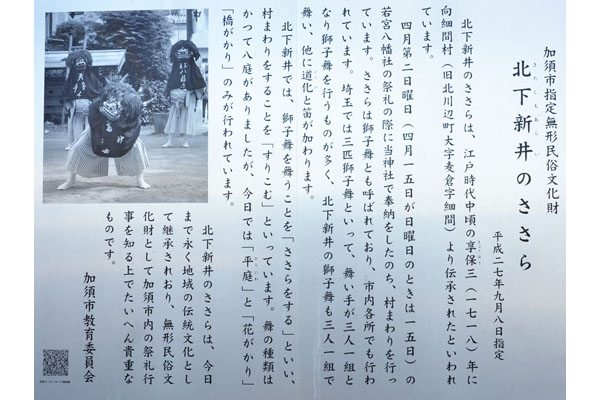 加須市指定無形民俗文化財
北下新井のささら
きたしもあらい
平成二七年九月八日指定
北下新井のささらは、江戸時代中頃の享保三（一七一八）年に
きょうほう
向細間村（旧北川辺町大字麦倉字細間）より伝承されたといわれ
ています。
四月第二日曜日（四月一五日が日曜日のときは一五日）の
若宮八幡社の祭礼の際に当神社で奉納をしたのち、村まわりを行っ
ています。ささらは獅子舞とも呼ばれており、市内各所でも行わ
れています。埼玉では三匹獅子舞といって、舞い手が三人一組と
なり獅子舞を行うものが多く、北下新井の獅子舞も三人一組で
舞い、他に道化と笛が加わります。
北下新井では、獅子舞を舞うことを「ささらをする」といい、
村まわりをすることを「すりこむ」といっています。舞の種類は
かつて八庭がありましたが、今日では「平庭」と「花がかり」
ひらにわ
「橋がかり」のみが行われています。
北下新井のささらは、今日
まで永く地域の伝統文化とし
て継承されおり、無形民俗文
化財として加須市内の祭礼行
事を知る上でたいへん貴重な
ものです。
加須市教育委員会